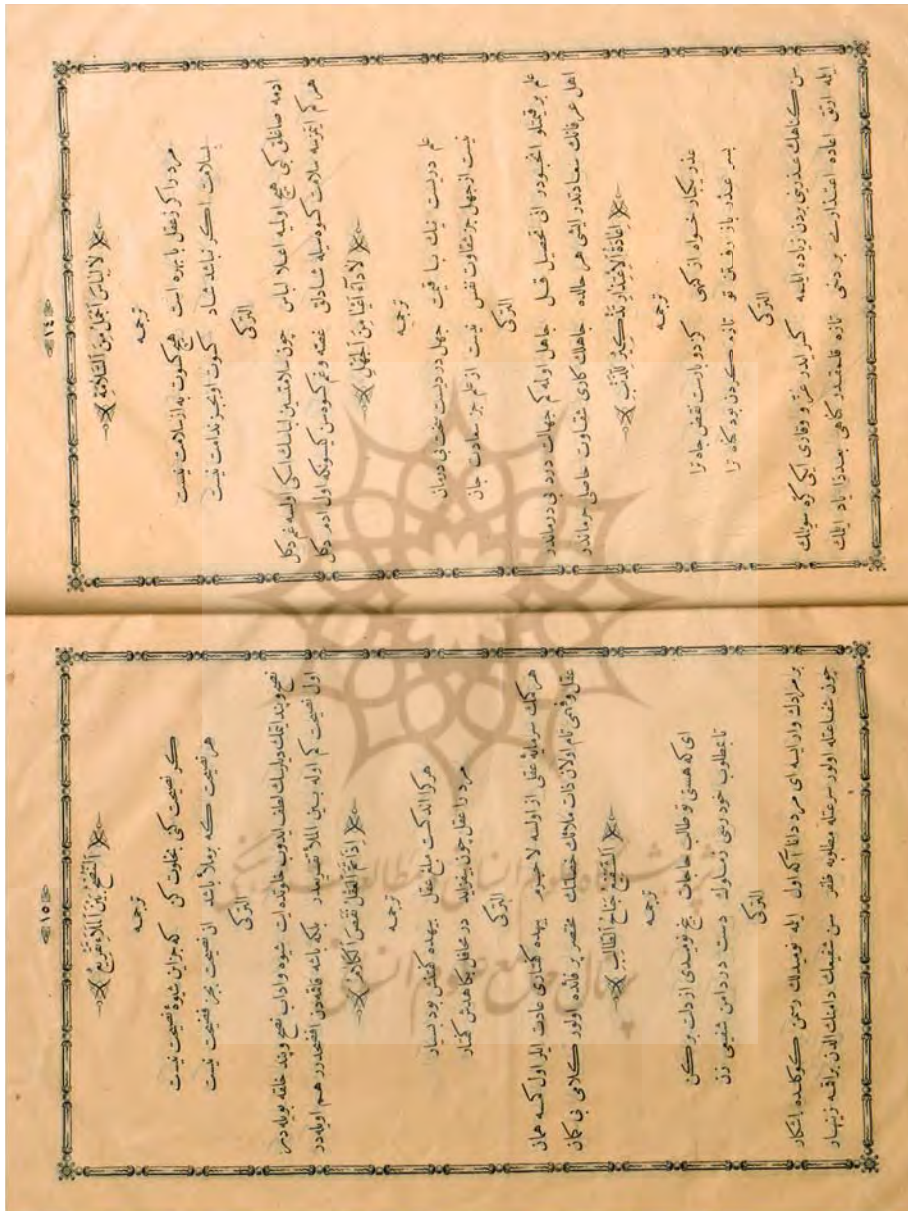 ﴿١٤﴾
﴿ لَا لِبَاسَ اَجْمَلُ مِنَ السَّلَامَةِ ﴾
ترجمه
مرد را كر زعقل با بهره است هيچ كسوت به از سلامت نيست
بسلامت اكر نباشد شاد كسوت او بجز ندامت نيست
التركى
ادمه صاغلق كبى هيچ اولميه اعلا لباس چون سلامتسين لباسك اسكى اولسه غم دكل
هر كم ايتمزسه سلامت كسوه سيله شادلق غصه وغم كسوه سن كيسونكه اول ادم دكل
﴿ لَا دَاءَ اَعْيَا مِنَ الْجَهْلِ ﴾
ترجمه
علم دريست نيك با قيمت جهل درديست سخت بى درمان
نيست از جهل جز شقاوت نفس نيست از علم جز سعادت جان
التركى
علم بر قيمتلو انجودر انى تحصيل قل جاهل اوله كم جهالت درد بى درماندر
اهل عرفانك سعادتدر ايشى هر حالده جاهلك كارى شقاوت حاصلى حرماندر
﴿ اِعَادَةُ الْاِعْتِذَارِ تَذْكِيرٌ لِلذَّنْبِ ﴾
ترجمه
عذر يكبار خواه از كنهى كز دو بارست نقض جاه ترا
بسر عذر باز رفتن تو تازه كردن بود كناه ترا
التركى
سن كناهك عذرينى بردن زياده ايلمه كم ايدر عز و وقارى ايكى كره سويلمك
ايله ارتق اعاده اعتذارى بر دخى تازه قلمقدر كناهى بعدذا ياد ايلمك
﴿١٥﴾
﴿ اَلنُّصْحُ بَيْنَ الْمَلَاءِ تَقْرِيعٌ ﴾
ترجمه
كر نصيحت كنى بخلوت كن كه جز اين شيوهٔ نصيحت نيست
هر نصيحت كه برملا باشد آن نصيحت بجز فضيحت نيست
التركى
نصح وپند ايتمك ديلرسك لطف ايدوب خلوتده ايت شيوه واداب نصح وپند خلقه بويله در
اول نصيحت كم اوله بين الملأ تقريعدر بلكه باشه قاقمه دن افضحدرر هم اويله در
﴿ اِذَا تَمَّ الْعَقْلُ نَقَصَ الْكَلَامُ ﴾
ترجمه
هركرا اندكست مبلغ عقل بيهده كفتنش بود بسيار
مرد را عقل چون بيفزايد در محافل بكاهدش كفتار
التركى
هر كمك سرمايهٔ عقلى از اولسه لاجرم بيهده كفتارى عادت ايلر اول كسه همان
عقل وفهمى تام اولان ذات ملائك خصلتك مختصر پر فائده اولور كلامى بى كمان
﴿ اَلشَّفِيعُ جَنَاحُ الطَّالِبِ ﴾
ترجمه
اى كه هستى تو طالب حاجات بيخ نوميدى از دلت بركن
تا بمطلوب خود رسى زملوك دست در دامن شفيعى زن
التركى
بر مرادك وار ايسه اى مرد دانا آكه اول ايله نوميدلك رسمن كوكلده اشكار
چون شفاعتله اولور سرعتله مطلوبه ظفر سن شفيعك دامنك الدن براقمه زينهار
پژوهشگاه علوم انسانى و مطالعات فرهنگى
پرتال جامع علوم انسانى